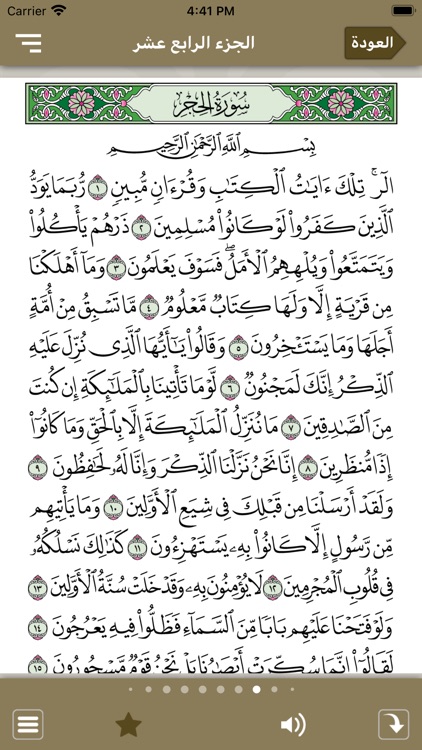 Carrier 4:41 PM
العودة
الجزء الرابع عشر
سُورَةُ الحِجْرِ
بِسْمِ ٱللَّهِ ٱلرَّحْمَٰنِ ٱلرَّحِيمِ
الٓر ۚ تِلْكَ ءَايَٰتُ ٱلْكِتَٰبِ وَقُرْءَانٍ مُّبِينٍ ١ رُّبَمَا يَوَدُّ
ٱلَّذِينَ كَفَرُوا۟ لَوْ كَانُوا۟ مُسْلِمِينَ ٢ ذَرْهُمْ يَأْكُلُوا۟
وَيَتَمَتَّعُوا۟ وَيُلْهِهِمُ ٱلْأَمَلُ ۖ فَسَوْفَ يَعْلَمُونَ ٣ وَمَآ أَهْلَكْنَا
مِن قَرْيَةٍ إِلَّا وَلَهَا كِتَابٌ مَّعْلُومٌ ٤ مَّا تَسْبِقُ مِنْ أُمَّةٍ
أَجَلَهَا وَمَا يَسْتَـْٔخِرُونَ ٥ وَقَالُوا۟ يَٰٓأَيُّهَا ٱلَّذِى نُزِّلَ عَلَيْهِ
ٱلذِّكْرُ إِنَّكَ لَمَجْنُونٌ ٦ لَّوْ مَا تَأْتِينَا بِٱلْمَلَٰٓئِكَةِ إِن كُنتَ
مِنَ ٱلصَّٰدِقِينَ ٧ مَا نُنَزِّلُ ٱلْمَلَٰٓئِكَةَ إِلَّا بِٱلْحَقِّ وَمَا كَانُوٓا۟
إِذًا مُّنظَرِينَ ٨ إِنَّا نَحْنُ نَزَّلْنَا ٱلذِّكْرَ وَإِنَّا لَهُۥ لَحَٰفِظُونَ ٩
وَلَقَدْ أَرْسَلْنَا مِن قَبْلِكَ فِى شِيَعِ ٱلْأَوَّلِينَ ١٠ وَمَا يَأْتِيهِم
مِّن رَّسُولٍ إِلَّا كَانُوا۟ بِهِۦ يَسْتَهْزِءُونَ ١١ كَذَٰلِكَ نَسْلُكُهُۥ
فِى قُلُوبِ ٱلْمُجْرِمِينَ ١٢ لَا يُؤْمِنُونَ بِهِۦ ۖ وَقَدْ خَلَتْ سُنَّةُ ٱلْأَوَّلِينَ ١٣
وَلَوْ فَتَحْنَا عَلَيْهِم بَابًا مِّنَ ٱلسَّمَآءِ فَظَلُّوا۟ فِيهِ يَعْرُجُونَ ١٤
لَقَالُوٓا۟ إِنَّمَا سُكِّرَتْ أَبْصَٰرُنَا بَلْ نَحْنُ قَوْمٌ مَّسْحُورُونَ ١٥